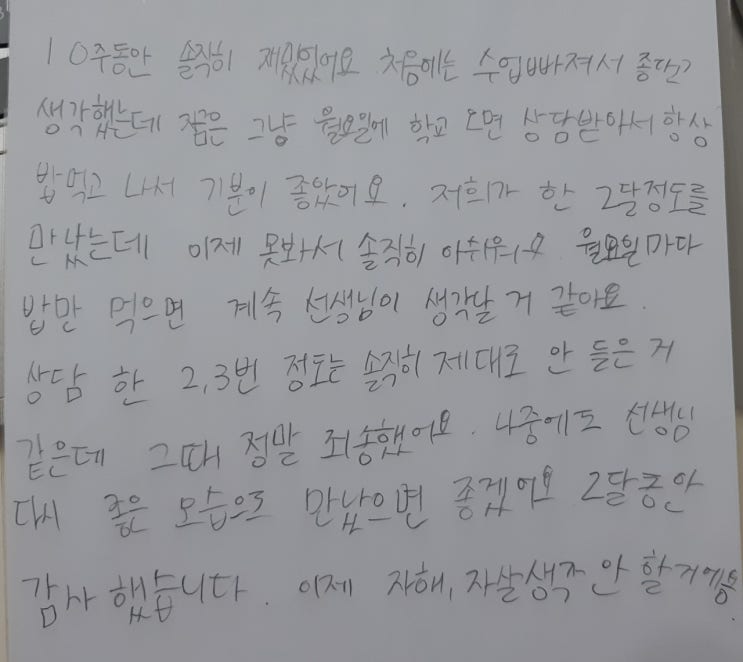 10주동안 솔직히 재밌었어요 처음에는 수업빠져서 좋단고
생각했는데 지금은 그냥 월요일에 학교 오면 상담받아서 항상
밥먹고 나서 기분이 좋았어요. 저희가 한 2달정도를
만났는데 이제 못봐서 솔직히 아쉬워요 월요일마다
밥만 먹으면 계속 선생님이 생각날 거 같아요.
상담 한 2,3번 정도는 솔직히 제대로 안 들은 거
같은데 그때 정말 죄송했어요. 나중에도 선생님
다시 좋은 모습으로 만났으면 좋겠어요 2달동안
감사했습니다. 이제 자해, 자살생각 안 할거에용